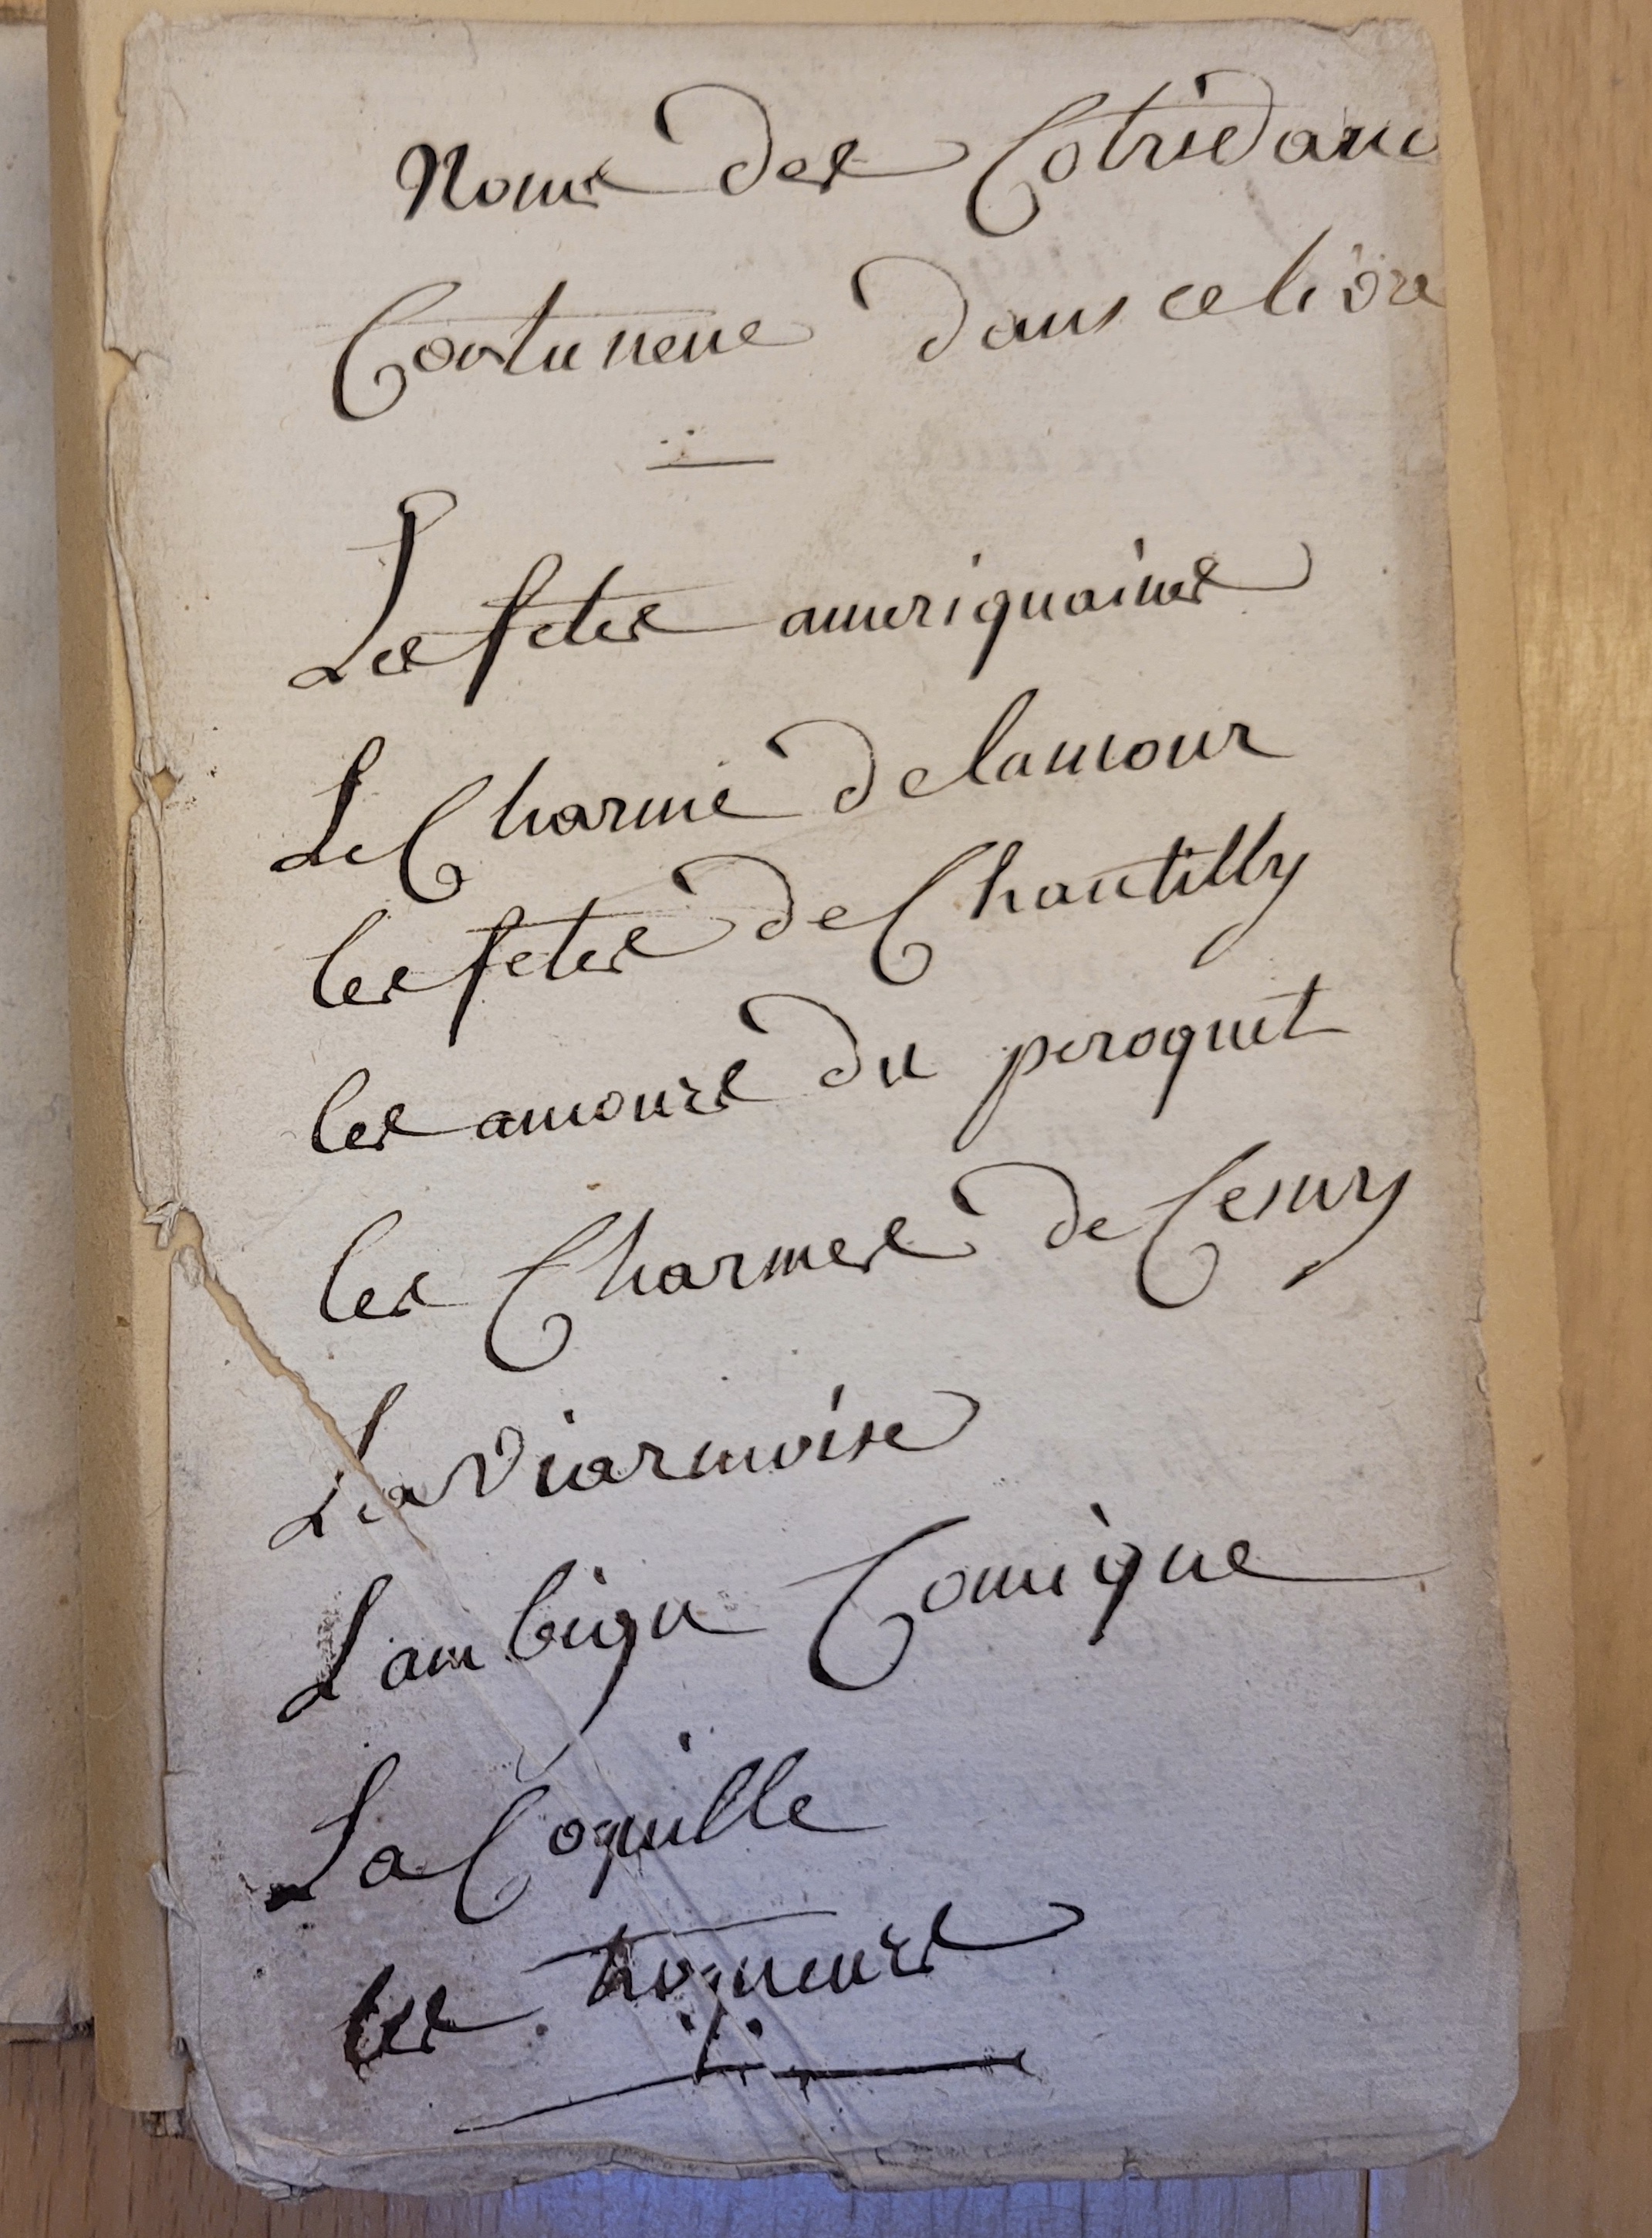 Noms des Cotriedanc
Contunene dans ce livre
Les fetes ameriquaines
Le Charme de lamour
les fetes de Chantilly
les amours du peroquet
les Charmes de
La Viarmoise
Lambigu Comique
La Coquille
les